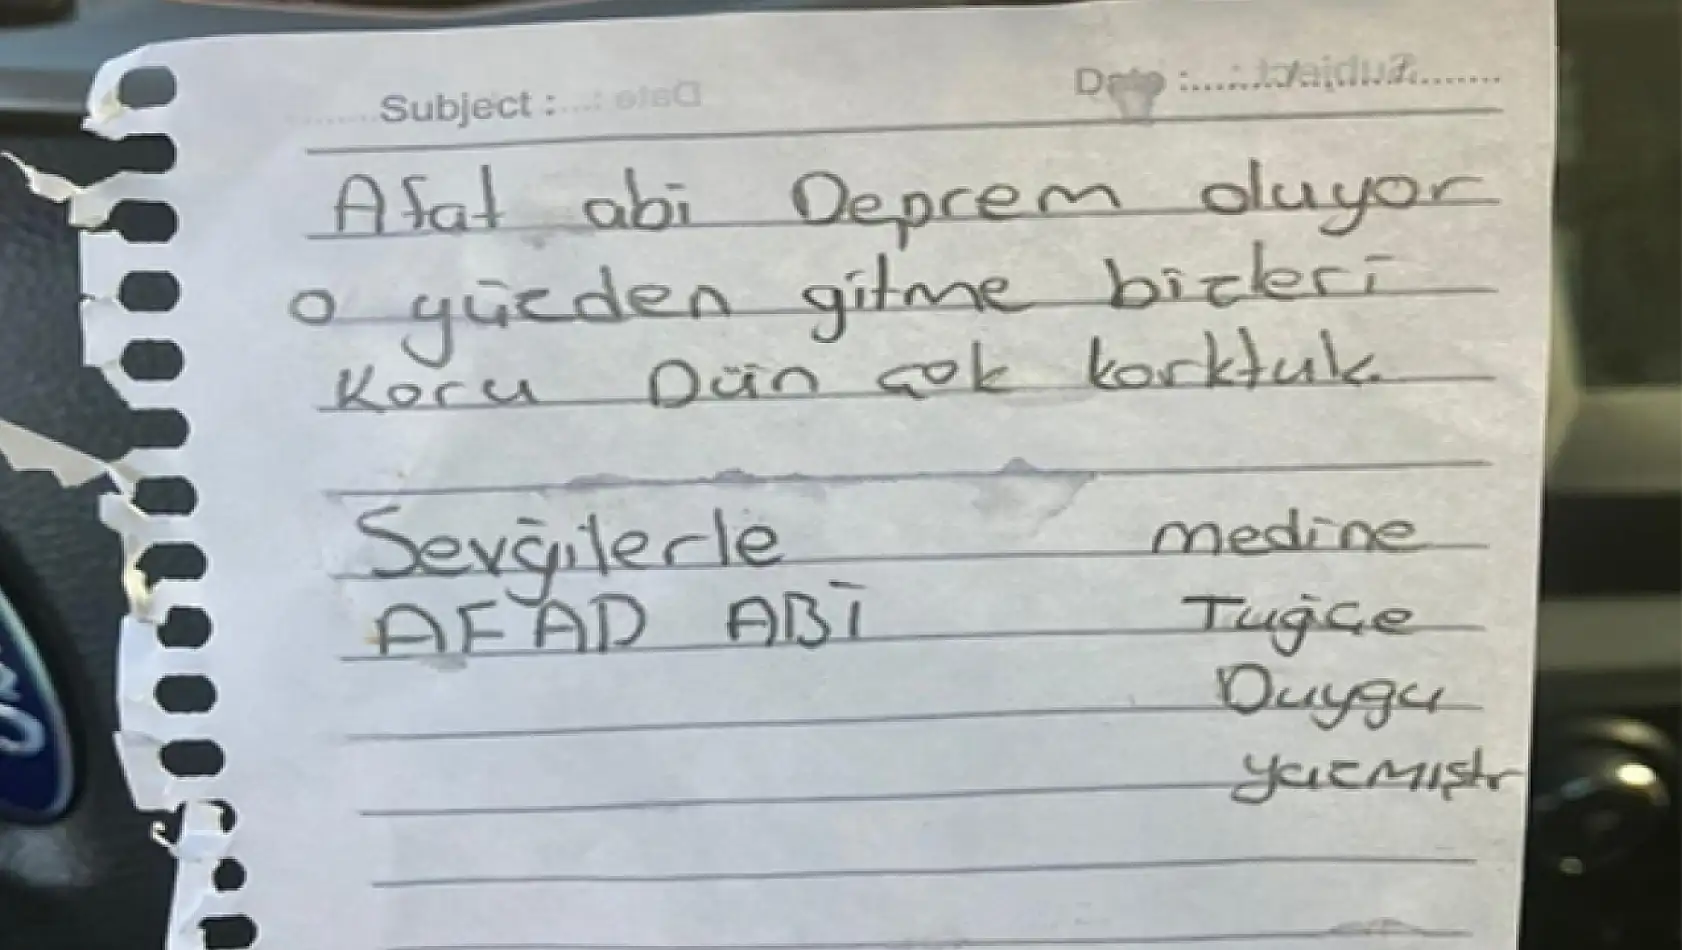 Subject : Date :
Afat abi Deprem oluyor
o yüzden gitme bizleri
Koru Dün çok korktuk.
Sevgilerle medine
AFAD ABİ Tuğçe
Duygu
yazmıştr